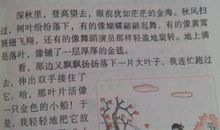 深秋里，登高望去，眼前犹如茫茫的金海。秋风扫
过，树叶纷纷落下，有的像蝴蝶翩翩起舞，有的像黄莺
展翅飞翔，还有的像舞蹈演员那样轻盈地旋转。地上满
是落叶，像铺了一层厚厚的金毯。
看，那边又飘飘扬扬落下一片大叶子，我连忙跑过
去，伸出双手接住了
它。哈，那叶片活像
一只金色的小船！于
是，我轻轻地把它放